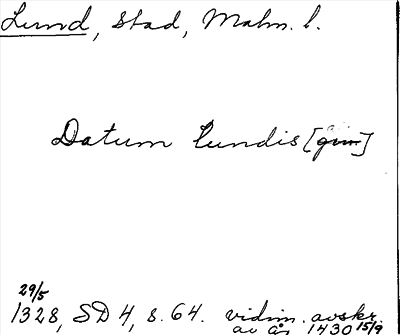 Lund, Stad, Malm. l.
Datum Lundis [gim]
29/5
1328, SD 4, s. 64. vidim. avskr.
av år 1430 15/9